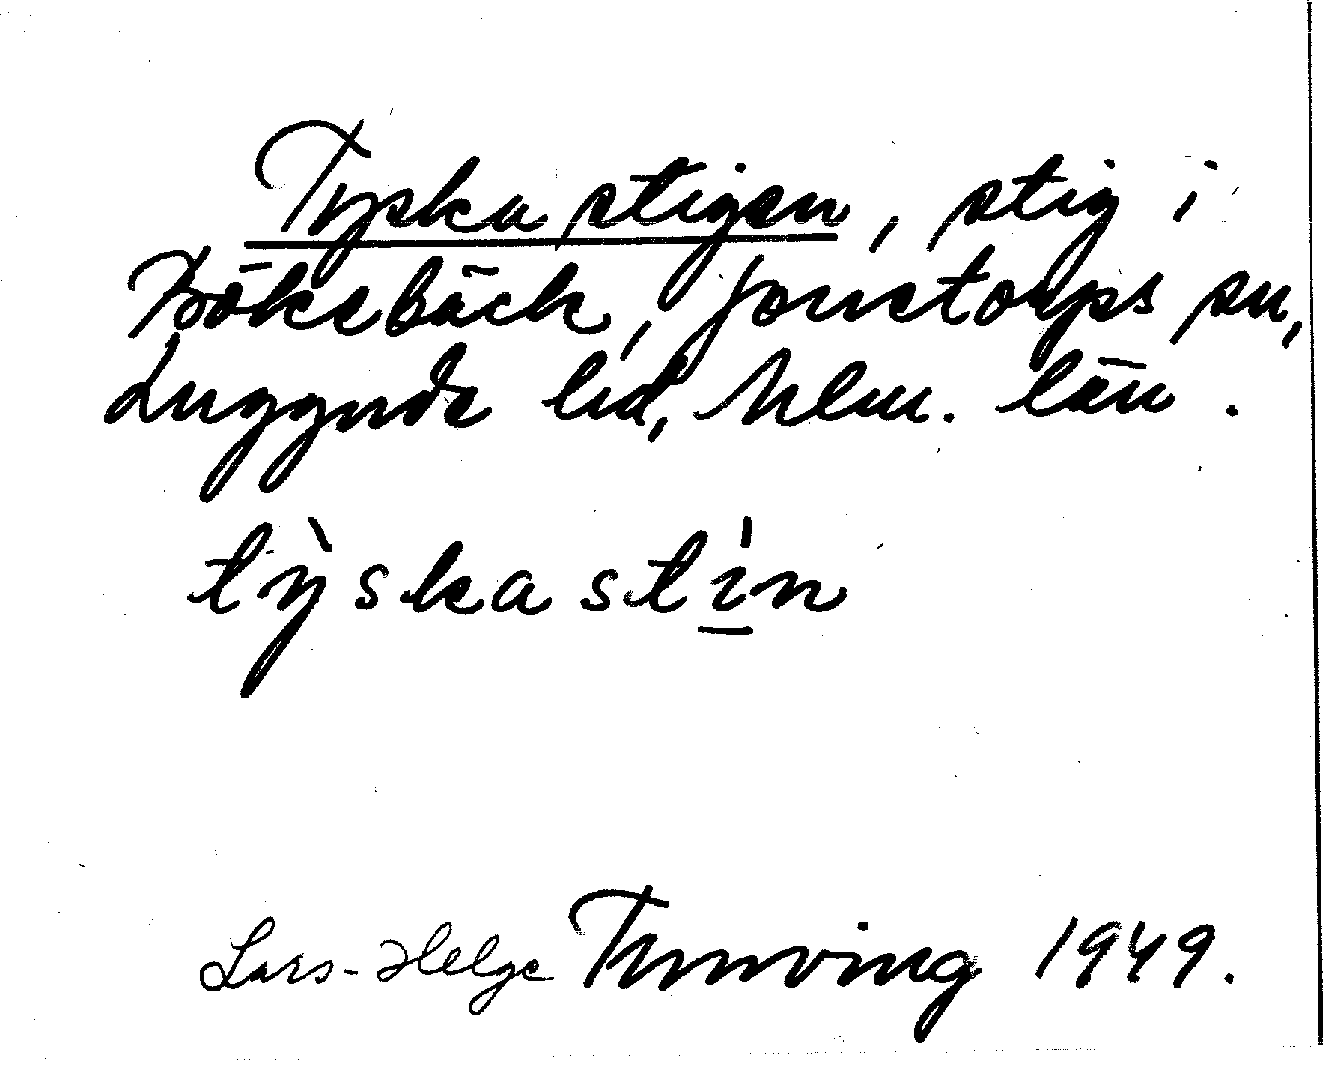 Tyska stigen, stig i
Bökebäck, Jonstorps sn,
Luggude hd, Mlm. län.
tỳska stı̍n
Lars-Helge Tunving 1949.